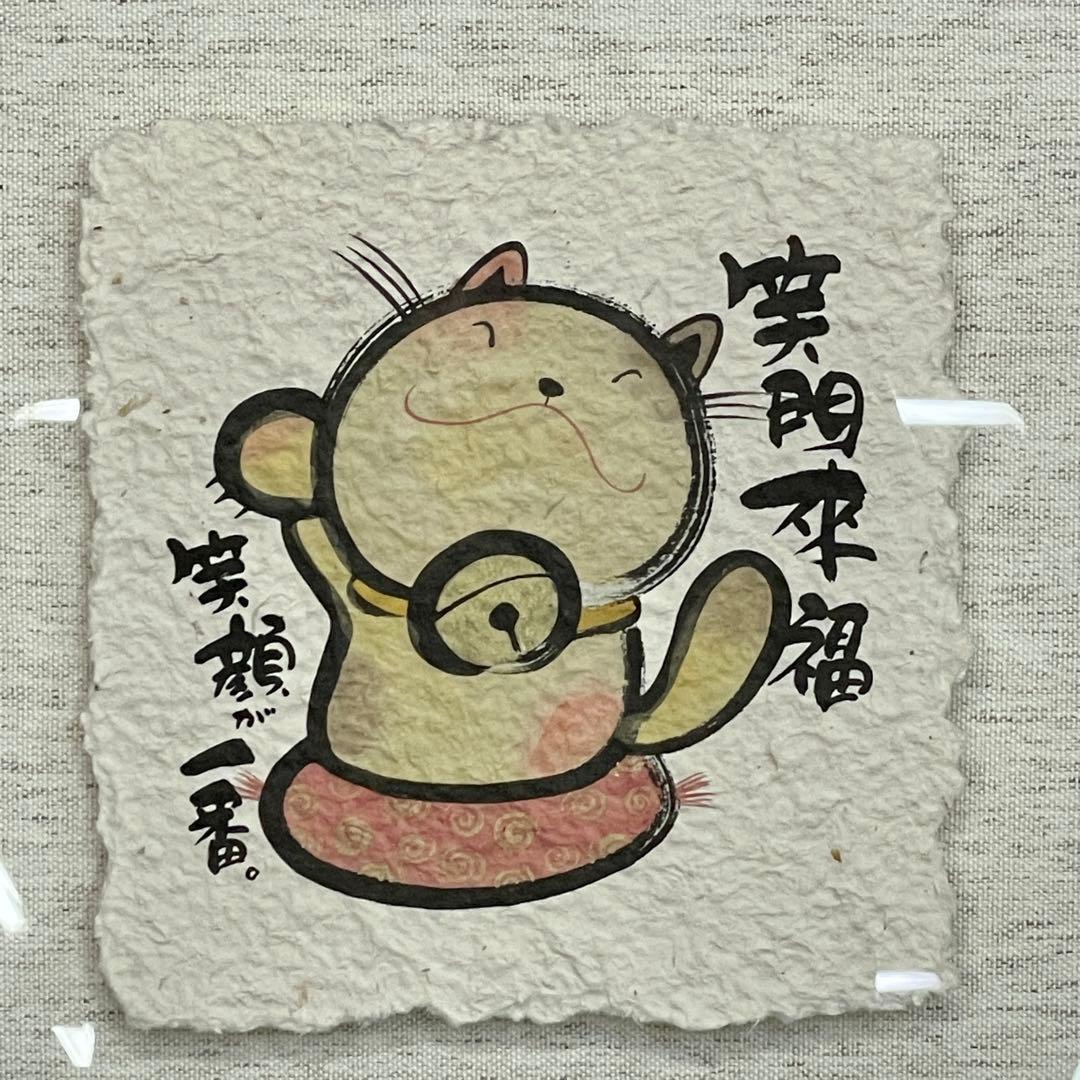 笑門来福
笑顔が一番。